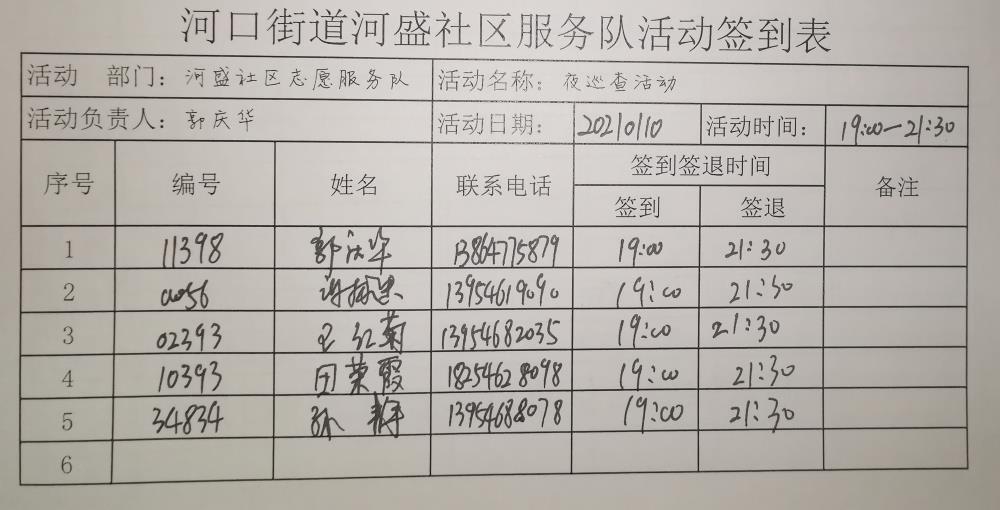 河口街道河盛社区服务队活动签到表
活动 部门：河盛社区志愿服务队 活动名称：夜巡查活动
活动负责人：郭庆华 活动日期：20210110 活动时间：19:00—21:30
序号 编号 姓名 联系电话 签到签退时间 备注
签到 签退
1 11398 郭庆华 13864775879 19:00 21:30
2 0056 13954619090 19:00 21:30
3 02393 王红菊 13954682035 19:00 21:30
4 10393 田荣霞 18254628098 19:00 21:30
5 34834 孙静 13954688078 19:00 21:30
6